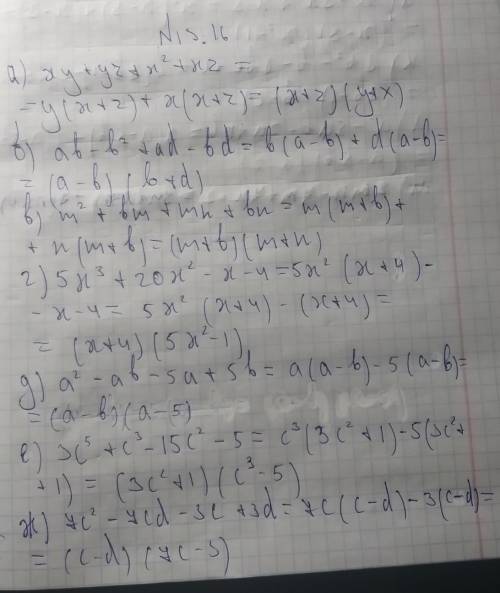 N15.16
а) xy + yz + x² + xz =
= y(x+z) + x(x+z) = (x+z)(y+x)
б) ab - b² + ad - bd = b(a-b) + d(a-b) =
= (a-b)(b+d)
в) m² + bm + mn + bn = m(m+b) +
+ n(m+b) = (m+b)(m+n)
г) 5x³ + 20x² - x - 4 = 5x²(x+4) -
- x - 4 = 5x²(x+4) - (x+4) =
= (x+4)(5x²-1)
д) a² - ab - 5a + 5b = a(a-b) - 5(a-b) =
= (a-b)(a-5)
е) 3c⁵ + c³ - 15c² - 5 = c³(3c²+1) - 5(3c²+
+1) = (3c²+1)(c³-5)
ж) 7c² - 7cd - 3c + 3d = 7c(c-d) - 3(c-d) =
= (c-d)(7c-3)